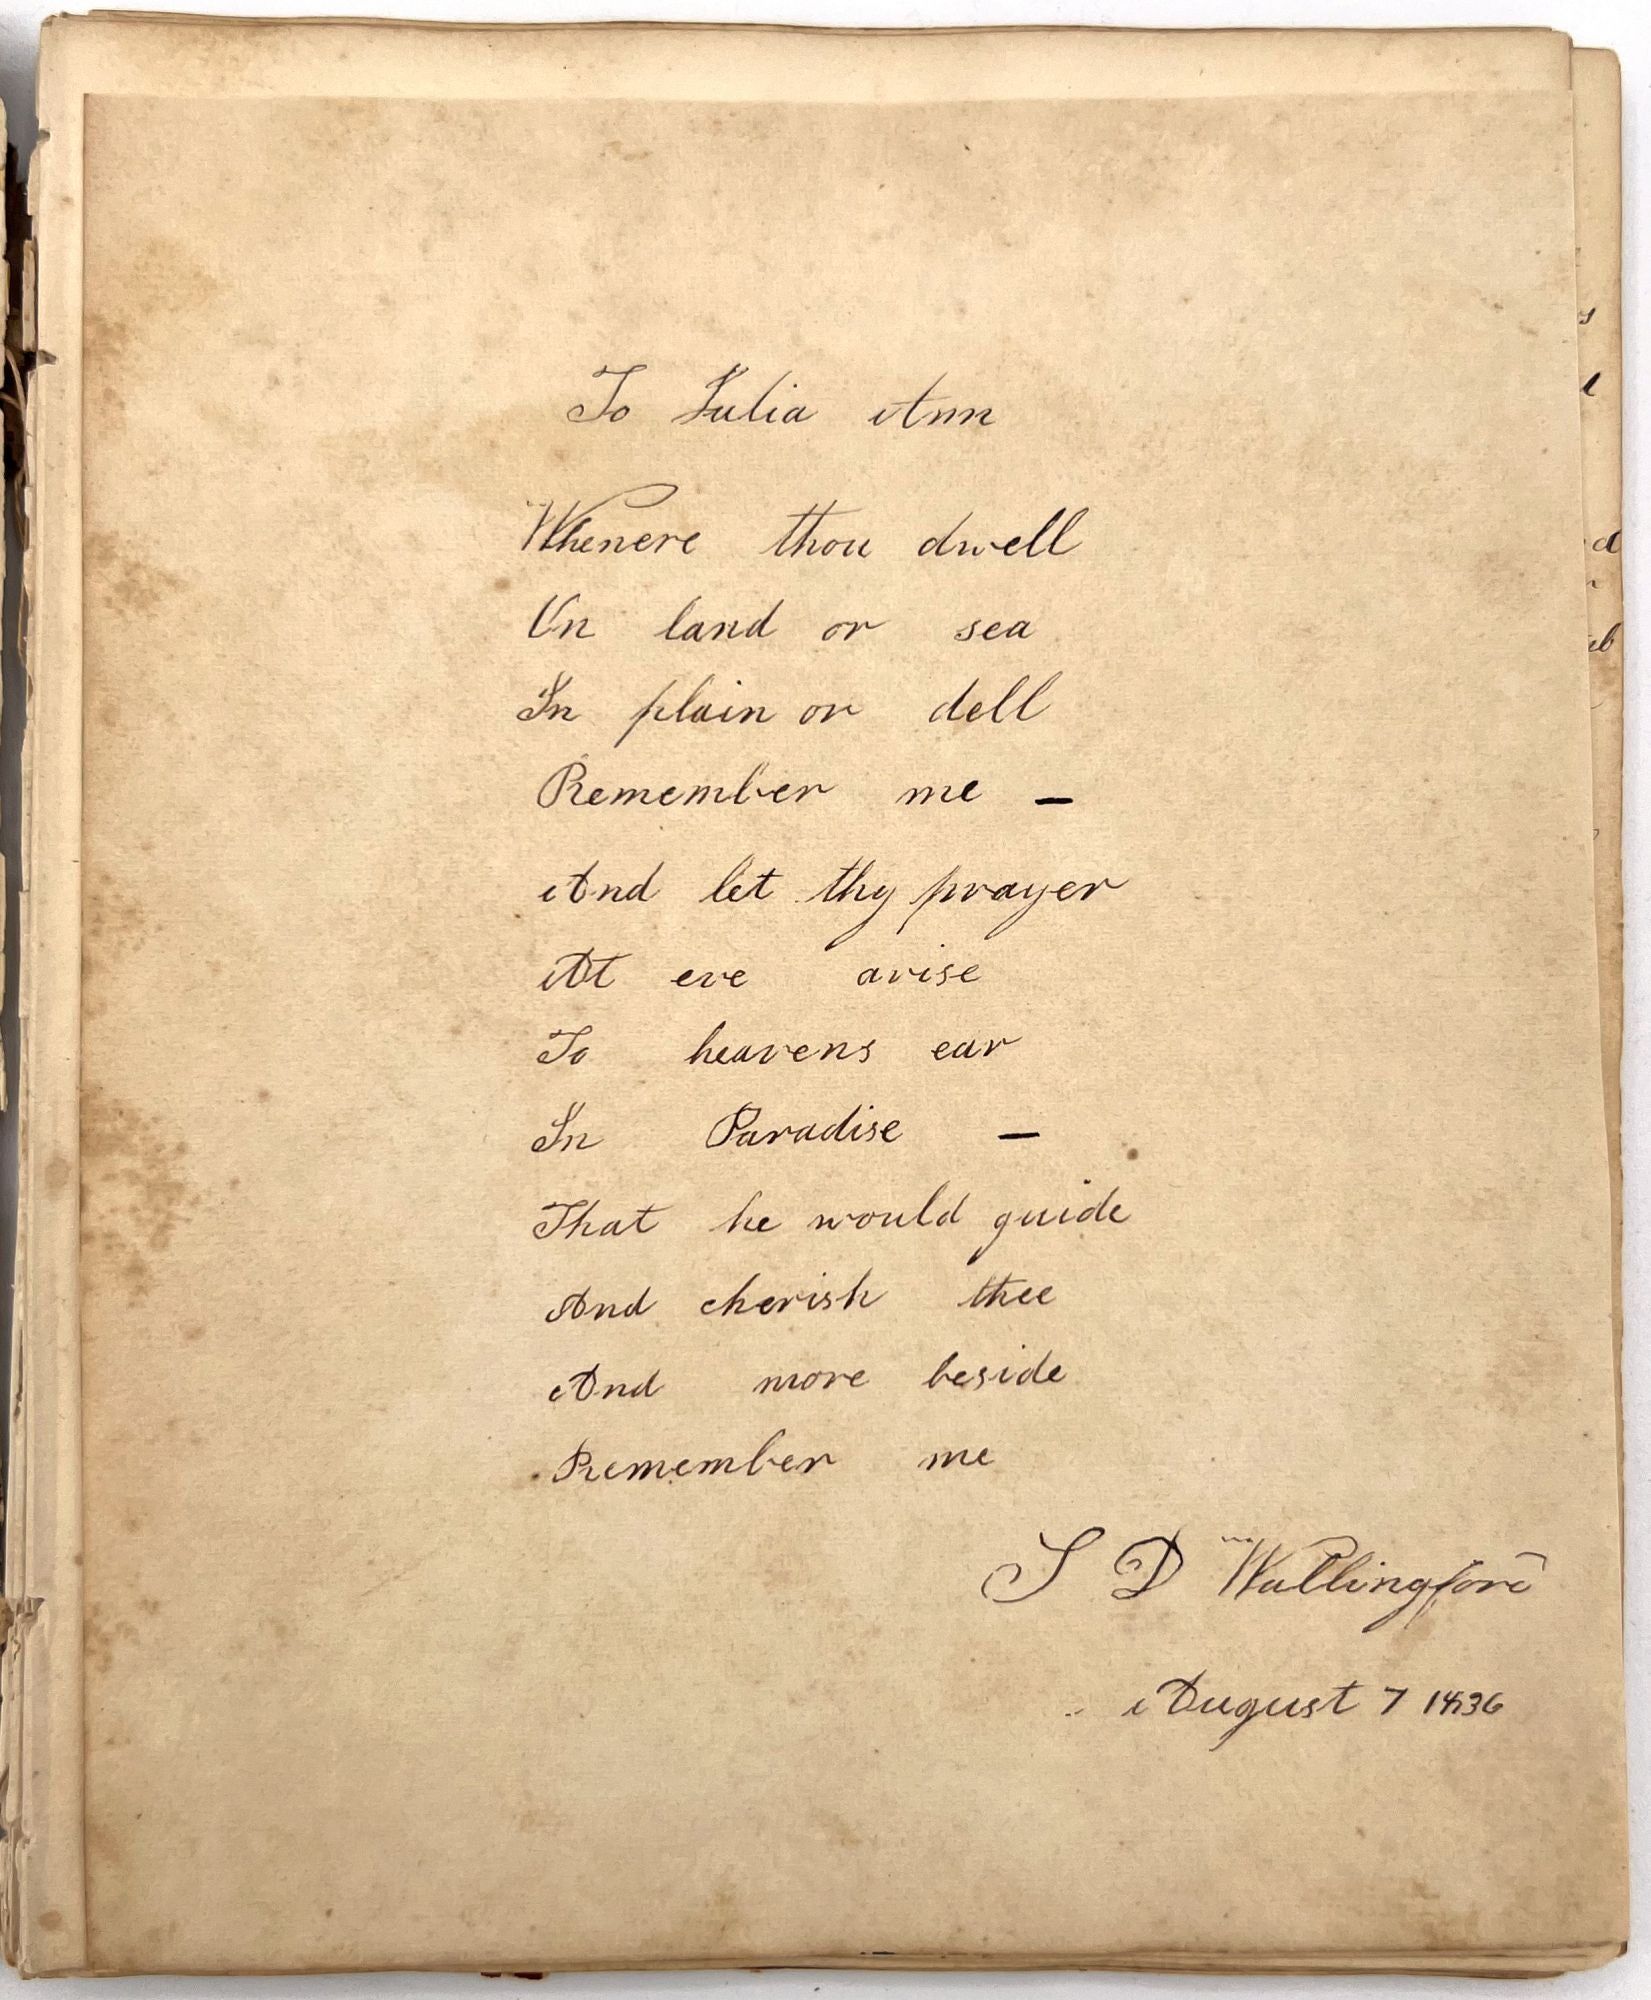 To Julia Ann
Whenere thou dwell
On land or sea
In plain or dell
Remember me —
And let thy prayer
At eve arise
To heavens ear
In Paradise —
That he would guide
And cherish thee
And more beside
Remember me
S D Wallingford
August 7 1836